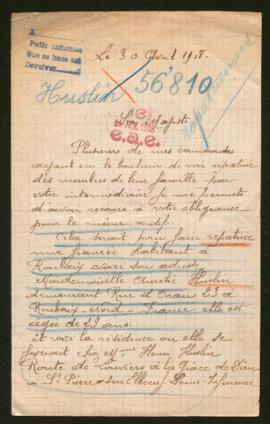 3
Pedir informes
Que se hace así
Devolver
Le 30 Avril 1918.
Huslin
56'810
31
1918
e.a.e.
Rapatriement
Sa Majesté
Plusieurs de mes camarades
ayant eu le bonheur de voir rapatrié
des membres de leur famille par
votre intermédiaire je me permets
d'avoir recours à votre obligeance
pour le même motif.
Cela serait pour faire rapatriée
ma fiancée habitant à
Roubaix voici son adresse
Mademoiselle Huslin
demeurant Rue d'Oran 23 à
Roubaix - Nord - France elle est
agée de 21 ans.
et voici la résidence ou elle se
fixerait chez Mme Henri Huslin
Route de Louviers à la Grace de Dieu
à St Pierre Elbeuf Seine-Inférieure